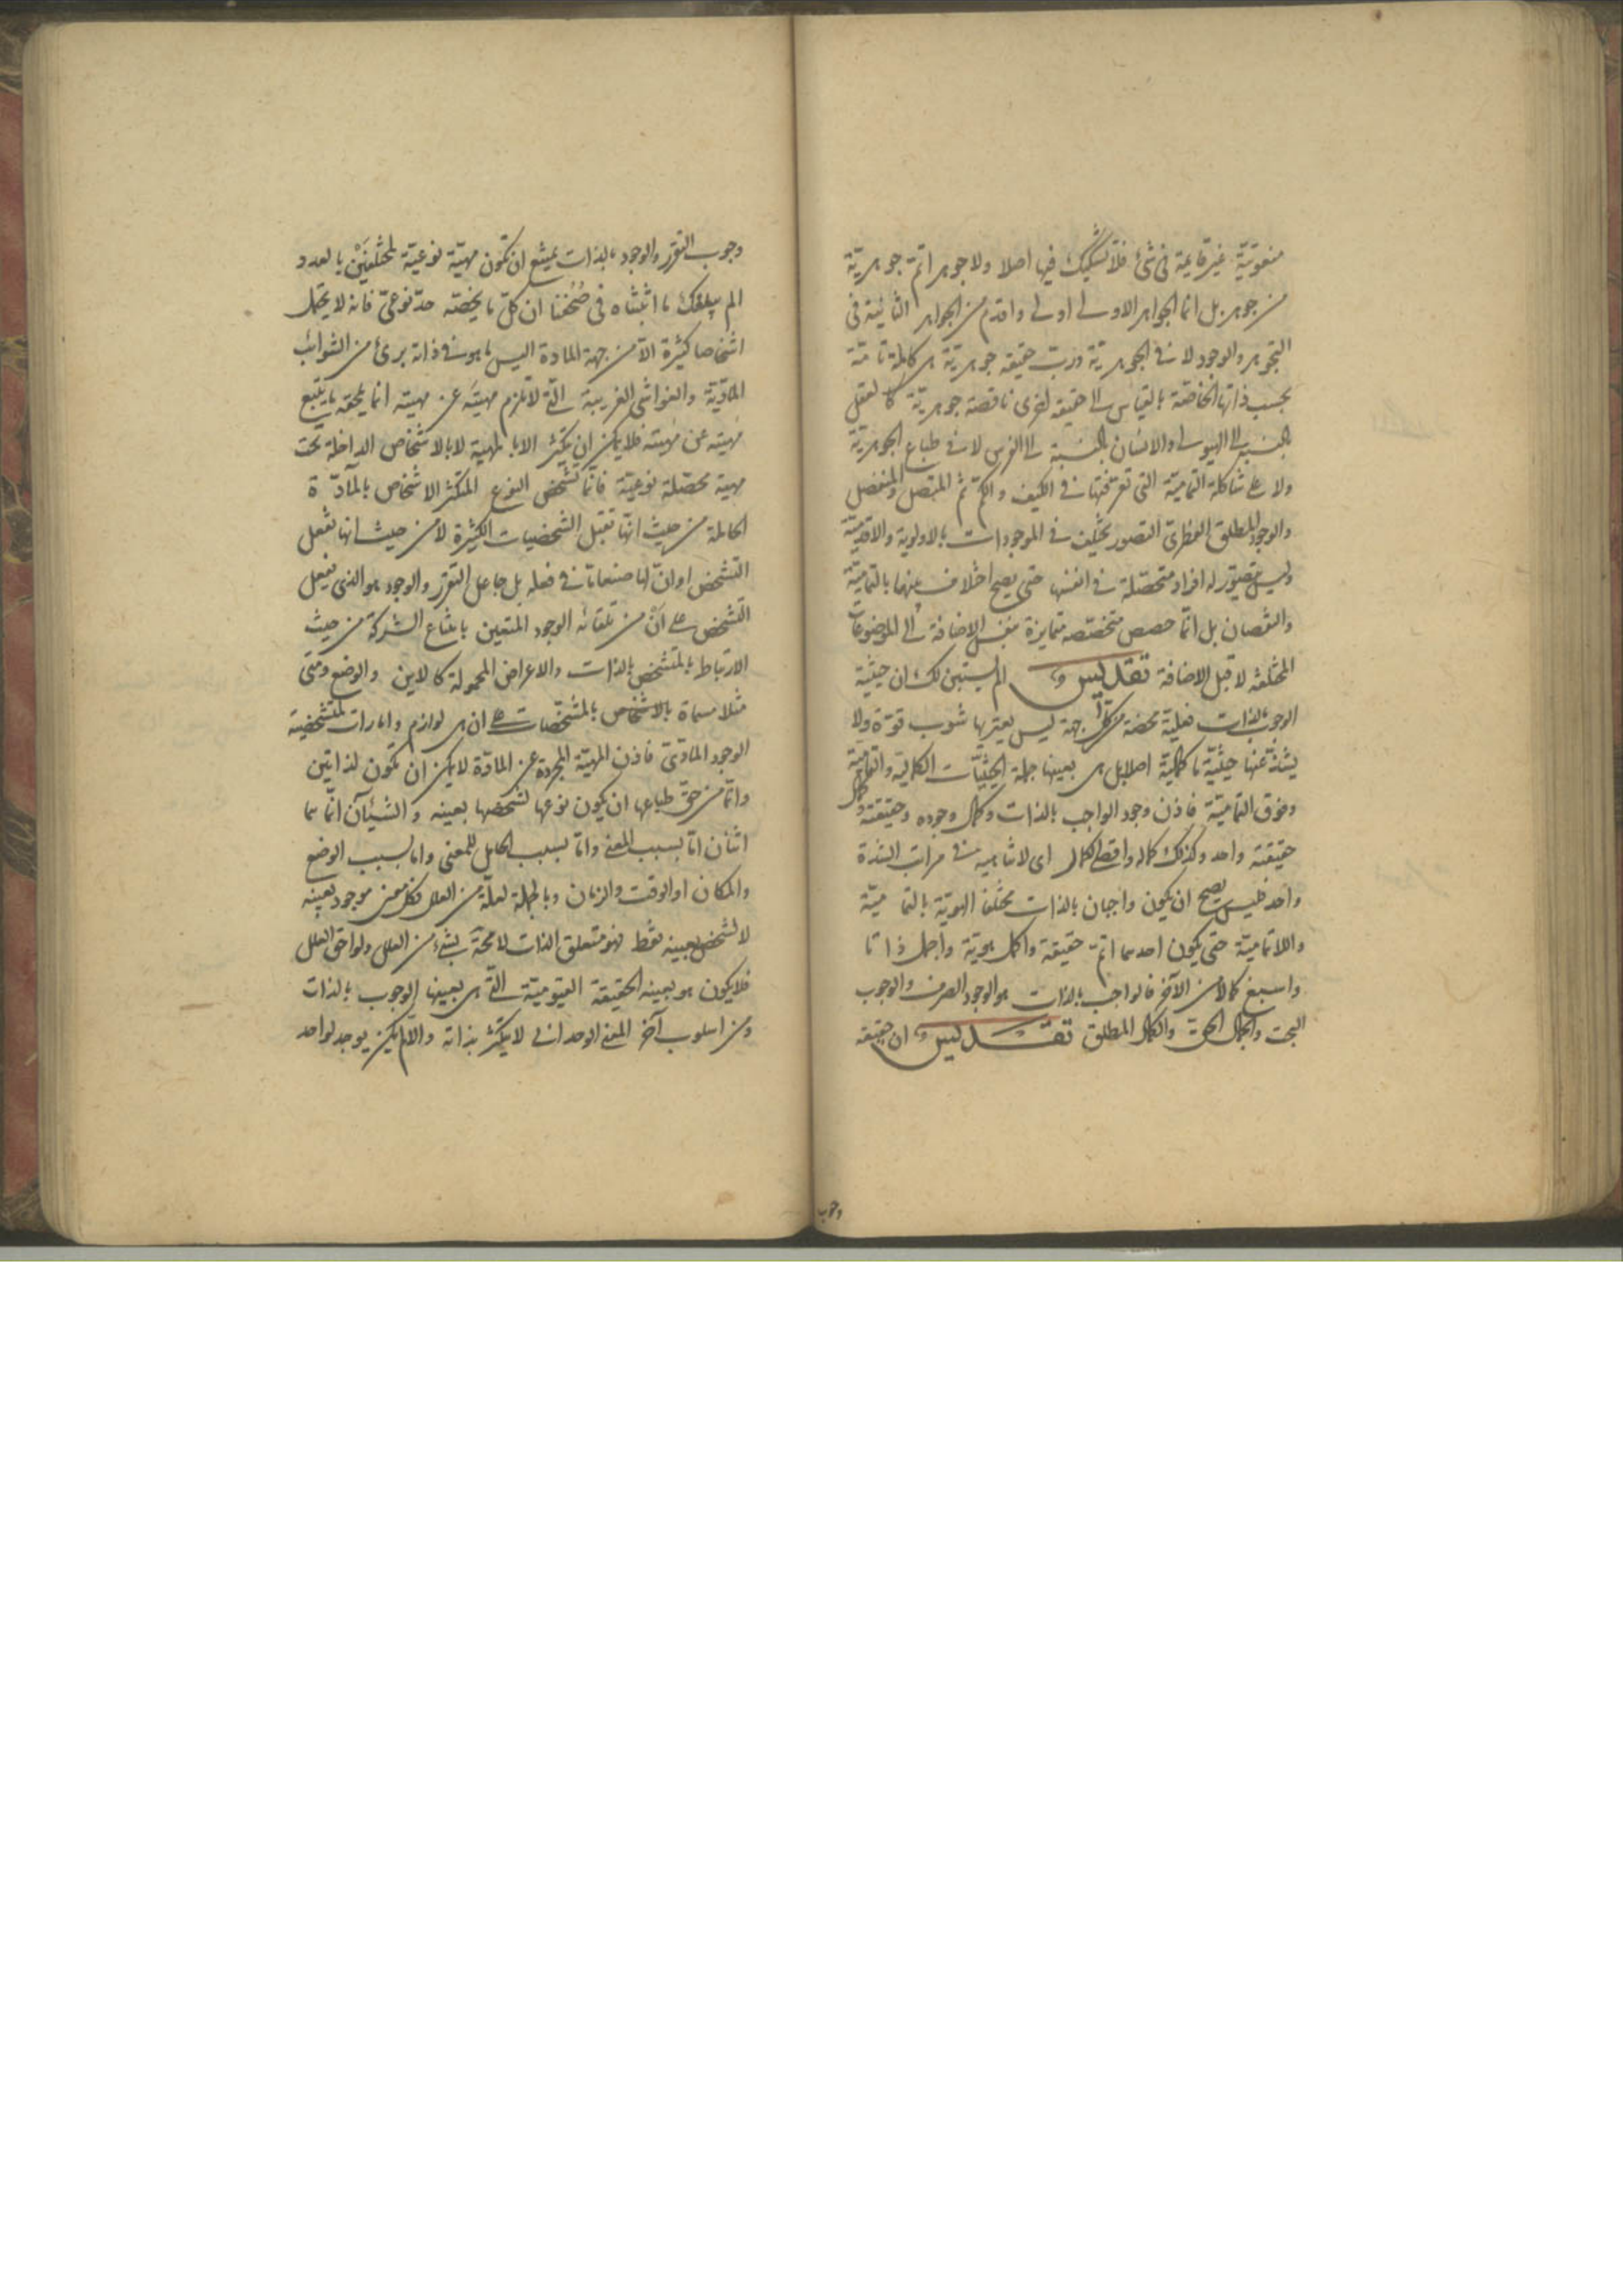 منعوتيّة غير قايمة فى شئ فلا تشكيك فيها اصلا ولا جوهر اتمّ جوهريّة
من جوهر بل انما الجواهر الاولى اولى واقدم من الجواهر الثانية فى
التجوهر والوجود لا فى الجوهريّة وربّ حقيقة جوهريّة هى كاملة تامّة
بحسب ذاتها الخاصّة بالقياس الى حقيقة اخرى ناقصة جوهريّة كالعقل
بالنسبة الى الهيولى والانسان بالنسبة الى الفرس لا فى طباع الجوهريّة
ولا على شاكلة التماميّة التى تعرّفتها فى الكيف والكمّ ثمّ المتصل والمنفصل
والوجود المطلق الفطرىّ التصور يختلف فى الموجودات بالاولوية والاقدميّة
وليس يتصوّر له افراد متحصّلة فى انفسها حتى يصح اختلاف بينها بالتماميّة
والنقصان بل انّما حصص متخصّصه متمايزة بنفس الاضافة الى الموضوعات
المختلفة لا قبل الاضافة تقديس ألم يستبن لك ان حيثيّة
الوجوب بالذات فعليّة محضة من كلّ جهة ليس يعتريها شوب قوّة ولا
يشذّ عنها حيثيّة ما كماليّة اصلا بل هى بعينها جملة الحيثيّات الكمالية والتماميّة
وفوق التماميّة فاذن وجود الواجب بالذات وكمال وجوده وحقيقته وكمال
حقيقته واحد وكذلك كماله واقصى الكمال اى لا تناهيه فى مراتب الشدة
واحد فليس يصح ان يكون واجبان بالذات مختلفا الهويّة بالتماميّة
واللاتماميّة حتى يكون احدهما اتمّ حقيقة واكمل هويّة واجمل ذاتا
واسبغ كمالا من الآخر فالواجب بالذات هو الوجود الصرف والوجوب
البحت والجمال الحق والكمال المطلق تقديس ان حقيقة
وجوب
وجوب التقرّر والوجود بالذات يمتنع ان تكون مهيّة نوعيّة لمختلفين بالعدد
الم يبلغك ما اثبتناه فى صُحُفنا ان كلّ ما يخصّه حدّ نوعىّ فانه لا يحتمل
اشخاصا كثيرة الّا من جهة المادة اليس ما هو فى ذاته برئ من الشوائب
المادّية والغواشى الغريبة التى لا تلزم مهيّته عن مهيته انما يلحقه ما يتبع
مهيته عن مهيته فلا يمكن ان يتكثّر الا بالمهية لا بالاشخاص الداخلة تحت
مهية محصّلة نوعيّة فانّما تشخّص النوع المتكثر الاشخاص بالمادّة
الحاملة من حيث انّها تقبل التشخصيات الكثيرة لا من حيث انها تفعل
التشخص او انّ لها صنعا ما فى فعله بل جاعل التقرّر والوجود هو الذى يفعل
التشخص على انّ من تلقائه الوجود المتعين بامتناع الشركة من حيث
الارتباط بالمتشخص بالذات والاعراض المحمولة كالاين والوضع ومتى
مثلا مسماة بالاشخاص بالمشخّصات على ان هى لوازم وامارات للتشخصية
الوجود المادّىّ فاذن المهيّة المجردة عن المادّة لا يمكن ان تكون لذاتين
وانّما من حقّ طباعها ان يكون نوعها لشخصها بعينه والشيئآن انّما هما
اثنان امّا بسبب المعنى وامّا بسبب الحامل للمعنى واما بسبب الوضع
والمكان او الوقت والزمان وبالجملة لعلّة من العلل فكل معنى موجود بعينه
لا لشخص بعينه فقط فهو متعلق الذات لا محة بشئ من العلل ولواحق العلل
فلا يكون هو بعينه الحقيقة القيّوميّة التى هى بعينها الوجوب بالذات
ومن اسلوب آخر المعنى الوحدانى لا يتكثر بذاته والّا لم يكن يوجد لواحد